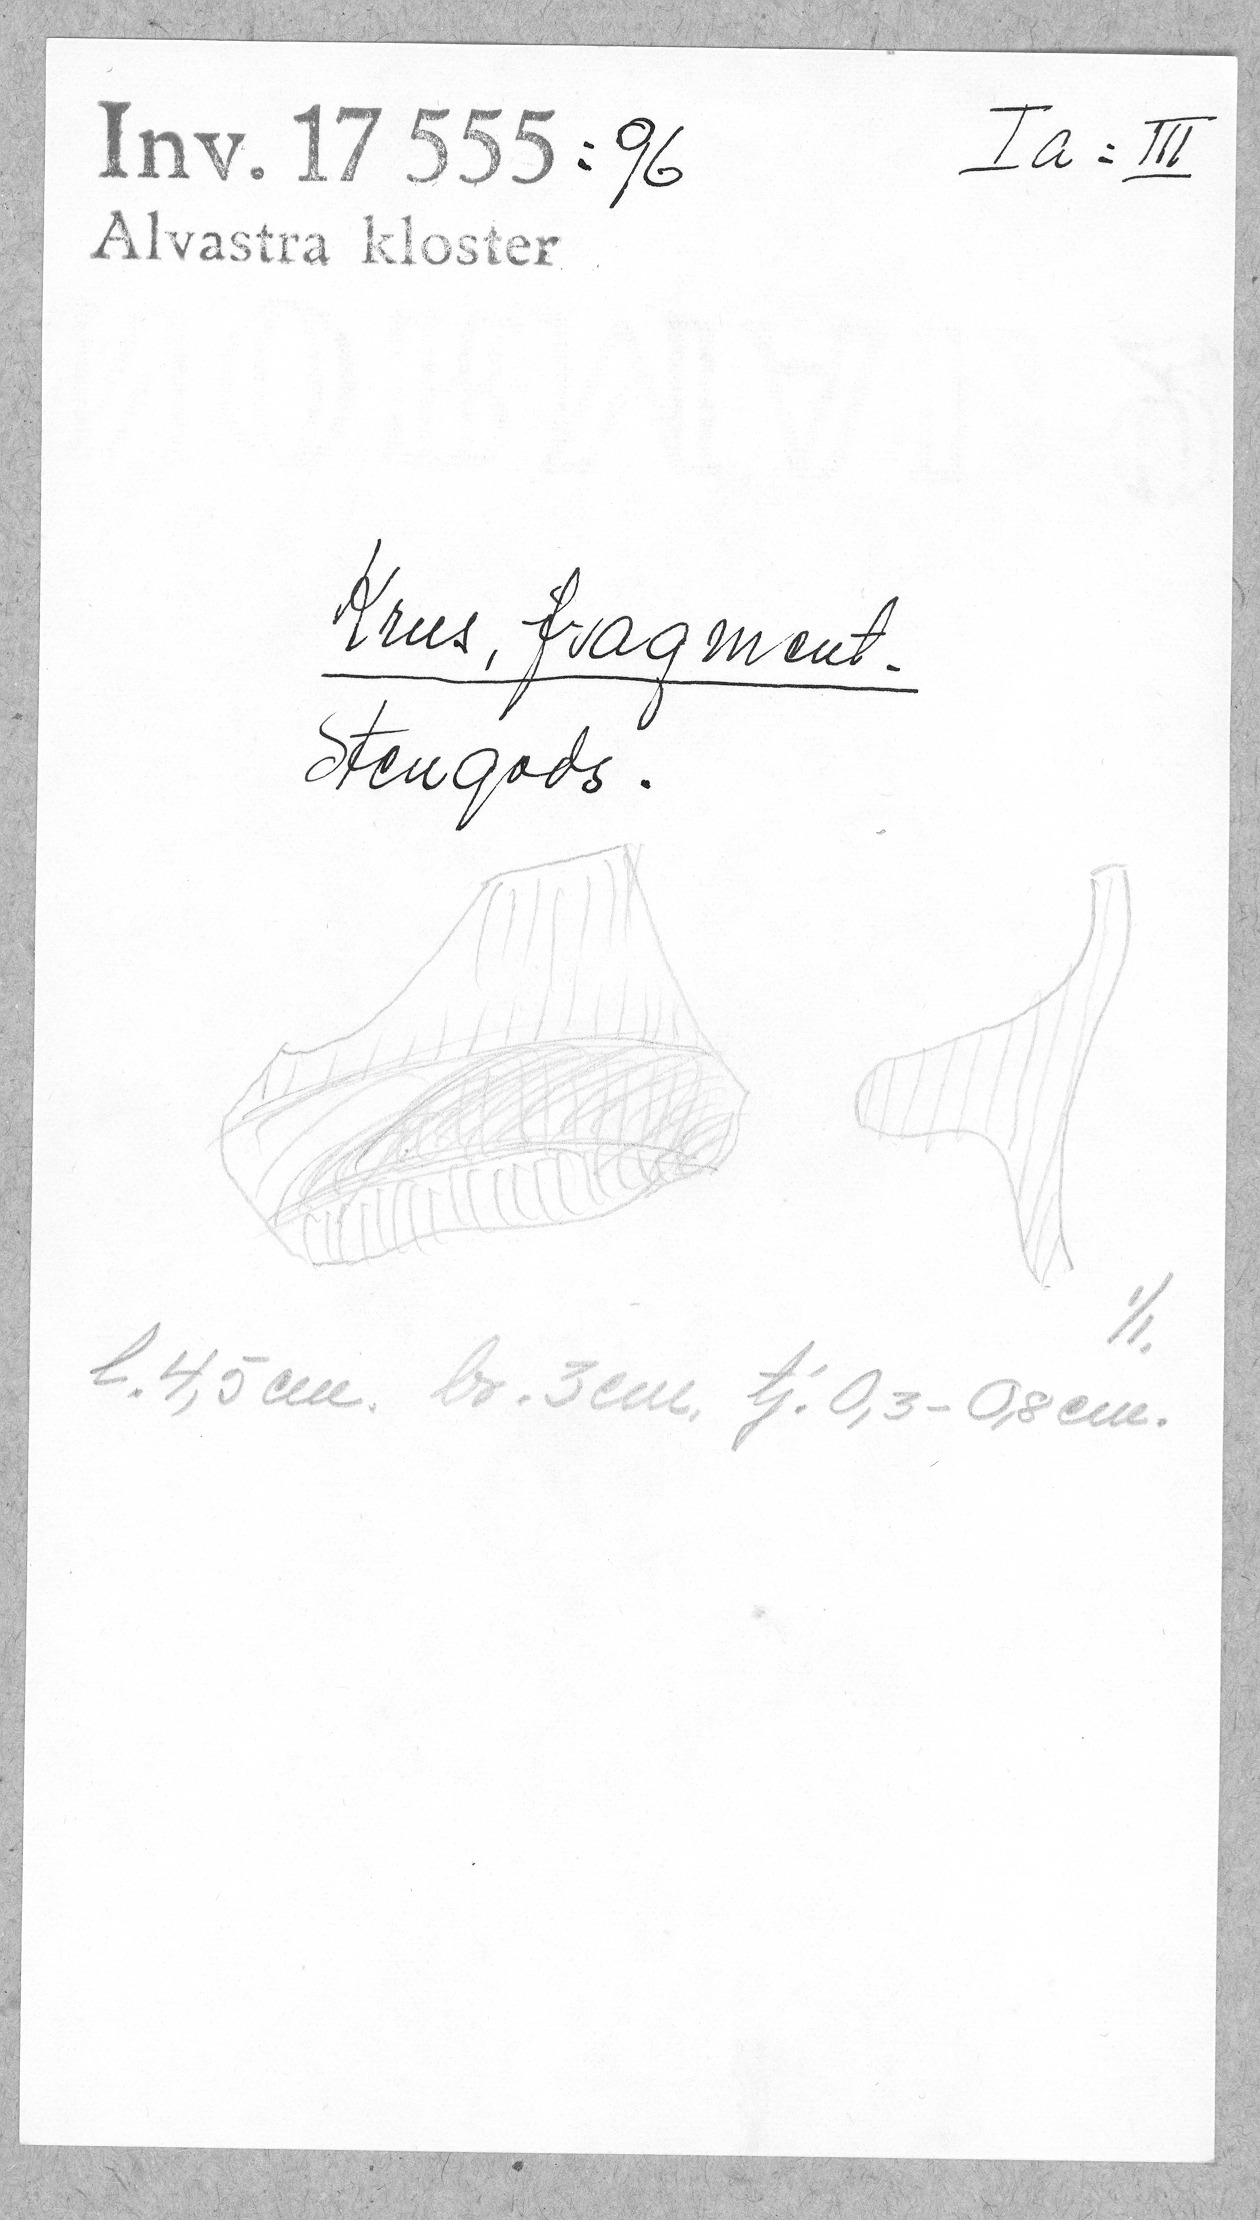 Inv. 17 555:96
Ia = III
Alvastra kloster
Krus, fragment.
Stengods.
1/1.
l. 4,5 cm. br. 3 cm. tj. 0,3-0,8 cm.